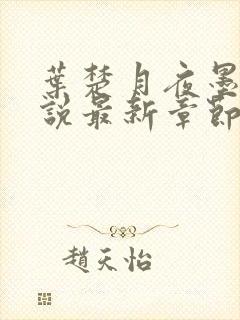 葉楚月夜墨
說最新章節
趙天怡